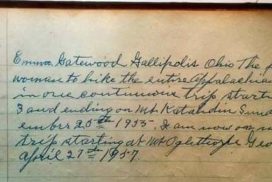 Emma Gatewood Gallipolis Ohio The
woman to hike the entire Appalachia
in one continuous trip start
3 and ending on Mt. Katahdin Sun
ember 25th 1955. I am now on my
trip starting at Mt Oglethorpe Geo
april 27th 1957.